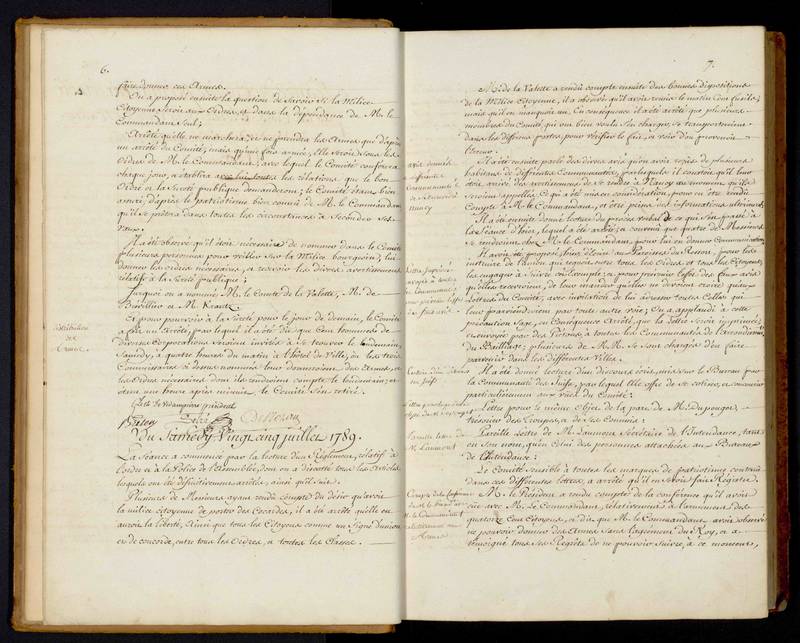 6.
faire donner ces Armes.
On a proposé ensuite la question de savoir si la Milice
Citoyenne seroit aux Ordres, et dans la dépendance de M. le
Commandant seul;
Arrêté qu'elle ne marchera, et ne prendra les Armes que d'après
un arrêté du Comité, mais qu'une fois armée, elle seroit sous les
Ordres de M. le Commandant, avec lequel le Comité conférera
chaque jour, et établira avec lui toutes les relations que le bon
Ordre et la Sureté publique demanderont; le Comité étant bien
assuré, d'après le patriotisme bien connu de M. le Commandant
qu'il se prêtera dans toutes les circonstances à seconder ses
vœux.
Il a été observé qu'il étoit nécessaire de nommer dans le Comité
plusieurs personnes pour veiller sur la Milice bourgeoise; lui
donner les Ordres nécessaires, et recevoir les divers avertissemens
relatifs à la Sureté publique;
Surquoi on a nommé M. le Comte de la Valette, M. de
et M.
Et pour pourvoir à la Sureté pour le jour de demain, le Comité
a fait un Arrêté, par lequel il a été dit que Cent hommes de
diverses Corporations seroient invités à se trouver le lendemain,
Samedy, à quatre heures du matin à l'hôtel de Ville, où les trois
Commissaires ci dessus nommés leur donneroient des Armes, et
les Ordres nécessaires dont ils rendroient compte le lendemain; et
étant une heure après minuit le Comité s'en retiré.
Distribution
des
Armes.
président
Du Samedy Vingt cinq juillet 1789.
La Séance a commencé par la lecture d'un Réglement, relatif à
l'ordre et à la Police de l'Assemblée, dont on a discuté tous les Articles
lesquels ont été définitivement arrêtés, ainsi qu'il suit.
Plusieurs de Messieurs ayant rendu compte du désir qu'avoit
la milice citoyenne de porter des Cocardes, il a été arrêté qu'elle en
auroit la liberté; Ainsi que tous les Citoyens comme un Signe d'union
et de concorde, entre tous les Ordres, et toutes les Classes.
7.
M. de la Valette a rendu compte ensuite des bonnes dispositions
de la Milice Citoyenne, il a observé qu'il avoit remis le matin des fusils;
mais qu'il en manquoit un. En conséquence il a été arrêté que plusieurs
membres du Comité, qui ont bien voulu s'en charger, se transporteroient
dans les différens postes, pour vérifier le fait, et voir d'où provenoit
l'erreur.
Il a été ensuite parlé des divers avis qu'on avoit reçus de plusieurs
habitans de différentes Communautés, par lesquels il constoit qu'il leur
étoit arrivé des avertissemens de se rendre à Nancy au moment qu'ils
seroient appellés, Ce qui a été mis en considération, pour en être rendu
Compte à M. le Commandant, et être pris des informations ultérieures.
Il a été ensuite donné lecture du procès verbal de ce qui s'en passé à
la Séance d'hier, lequel a été arrêté; et convenu que quatre de Messieurs
se rendroient chez M. le Commandant, pour lui en donner Communication.
Il avoit été proposé d'en écrire aux Paroisses du Ressort, pour les
instruire de l'union qui régnoit entre tous les Ordres et tous les Citoyens;
les engager à suivre cet exemple; et pour prévenir l'effet des faux avis
qu'elles recevroient, de leur mander qu'elles ne devoient croire qu'aux
Lettres du Comité, avec invitation de lui adresser toutes Celles qui
leur parviendroient par toute autre voie; On a applaudi à cette
précaution sage, en Conséquence Arrêté, que la Lettre seroit imprimée,
et envoyée par des Piétons à toutes les Communautés de l'arrondissement
du Bailliage; plusieurs de M.M. se sont chargés d'en faire
parvenir dans les différentes Villes.
Il a été donné lecture d'un discours écrit, mis sur le Bureau par
la Communauté des Juifs, par lequel Elle offre de se cotiser, et concourir
particulièrement aux vues du Comité;
Lettre pour le même Objet de la part de M. Dupouget,
trésorier des Troupes, et de ses Commis;
Pareille Lettre de M. Lormont Secrétaire de l'Intendance, tant
en son nom, qu'en celui des personnes attachées aux Bureaux
de l'Intendance;
Le Comité sensible à toutes les marques de patriotisme contenues
dans ces différentes lettres, a arrêté qu'il en soit fait Registre.
M. le Président a rendu compte de la conférence qu'il avoit
eue avec M. le Commandant, relativement à l'armement des
quatorze Cent Citoyens, et a dit que M. le Commandant avoit observé
ne pouvoir donner des Armes sans l'agrément du Roy, et a
témoigné tous ses Regrets de ne pouvoir suivre, à ce moment,